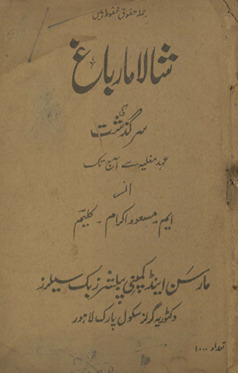 جملہ حقوق محفوظ ہیں
شالامار باغ
کی
سرگذشت
عہد مغلیہ سے آج تک
از
ایم۔ مسعود اکرام۔ کلیم
مارسن اینڈ کمپنی پبلشرز بک سیلرز
وکٹوریہ گرلز سکول پارک لاہور
تعداد ۱۰۰۰